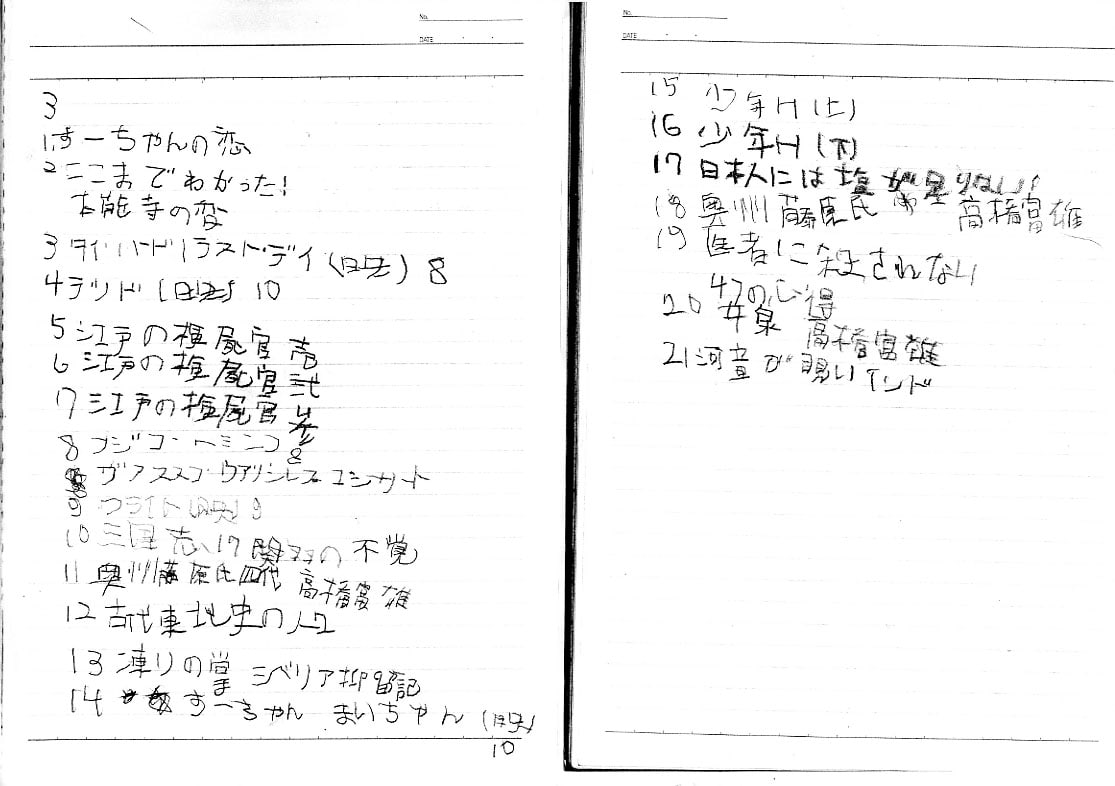 No.
DATE
3
1すーちゃんの恋
2ここまでわかった!
本能寺の変
3ダイ・ハード/ラスト・デイ(映) 8
4テッド 10
5江戸の検屍官 壱
6江戸の検屍官 弐
7江戸の検屍官 参
8フジコ・ヘミング
8
コンサート
9フライト(映) 9
10三国志、17関羽の不覚
11奥州藤原氏四代 高橋富雄
12古代東北史の人々
13凍りの掌 シベリア抑留記
14すーちゃん まいちゃん (映)
10
No.
DATE
15 少年H(上)
16 少年H(下)
17日本人には塩が足りない!
18奥州藤原氏 高橋富雄
19医者に殺されない
47の心得
20平泉 高橋富雄
21河童が覗いたインド